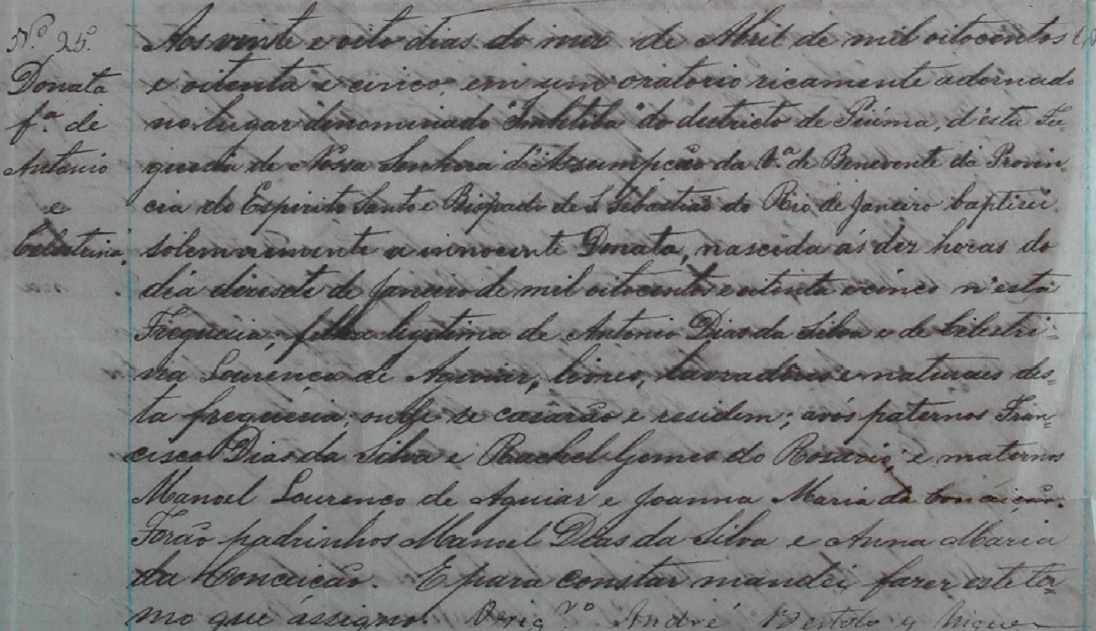 Nº 25º
Donata
fª de
Antonio
e
Celestrina.
Aos vinte e oito dias do mez de Abril de mil oitocentos
e oitenta e cinco, em um oratorio ricamente adornado
no lugar dinominado do destricto de Piúma, d'esta Fre-
guesia de Nossa Senhora d'Assumpção da Vª de Benevente da Provin-
cia do Espirito Santo e Bispado de S. Sebastião do Rio de Janeiro baptisei
solemnemente a innocente Donata, nascida ás dez horas do
dia dezesete de Janeiro de mil oitocentos e oitenta e cinco n'esta
Freguesia, filha legitima de Antonio Dias da Silva e de Celestri-
na Lourença de Aguiar, lavradores e naturaes des-
ta freguesia, onde se casarão e residem; avós paternos Fran-
cisco Dias da Silva e Rachel Gomes do Rosario, e maternos
Manoel Lourenco de Aguiar e Joanna Maria da Conceição.
Forão padrinhos Manoel Dias da Silva e Anna Maria
da Conceição. E para constar mandei fazer este ter-
mo que assigno. O Vigrº André